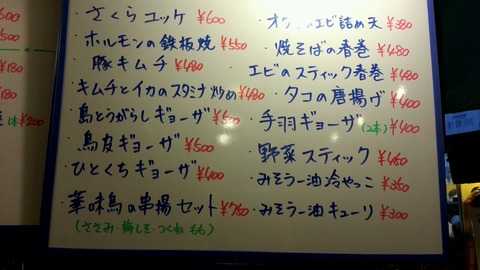 ・さくらユッケ ¥600
・ホルモンの鉄板焼 ¥550
・豚キムチ ¥480
・キムチとイカのスタミナ炒め ¥480
・鳥とうがらしギョーザ ¥500
・鳥皮ギョーザ ¥500
・ひとくちギョーザ ¥400
・華味鳥の串揚セット ¥750
(ささみ・梅しそ・つくね もも)
エビ詰め天 ¥380
・焼そばの春巻 ¥480
・エビのスティック春巻 ¥480
・タコの唐揚げ ¥400
・手羽ギョーザ(2本) ¥400
・野菜スティック ¥450
・みそラー油冷やっこ ¥350
・みそラー油キューリ ¥300
¥180
¥200